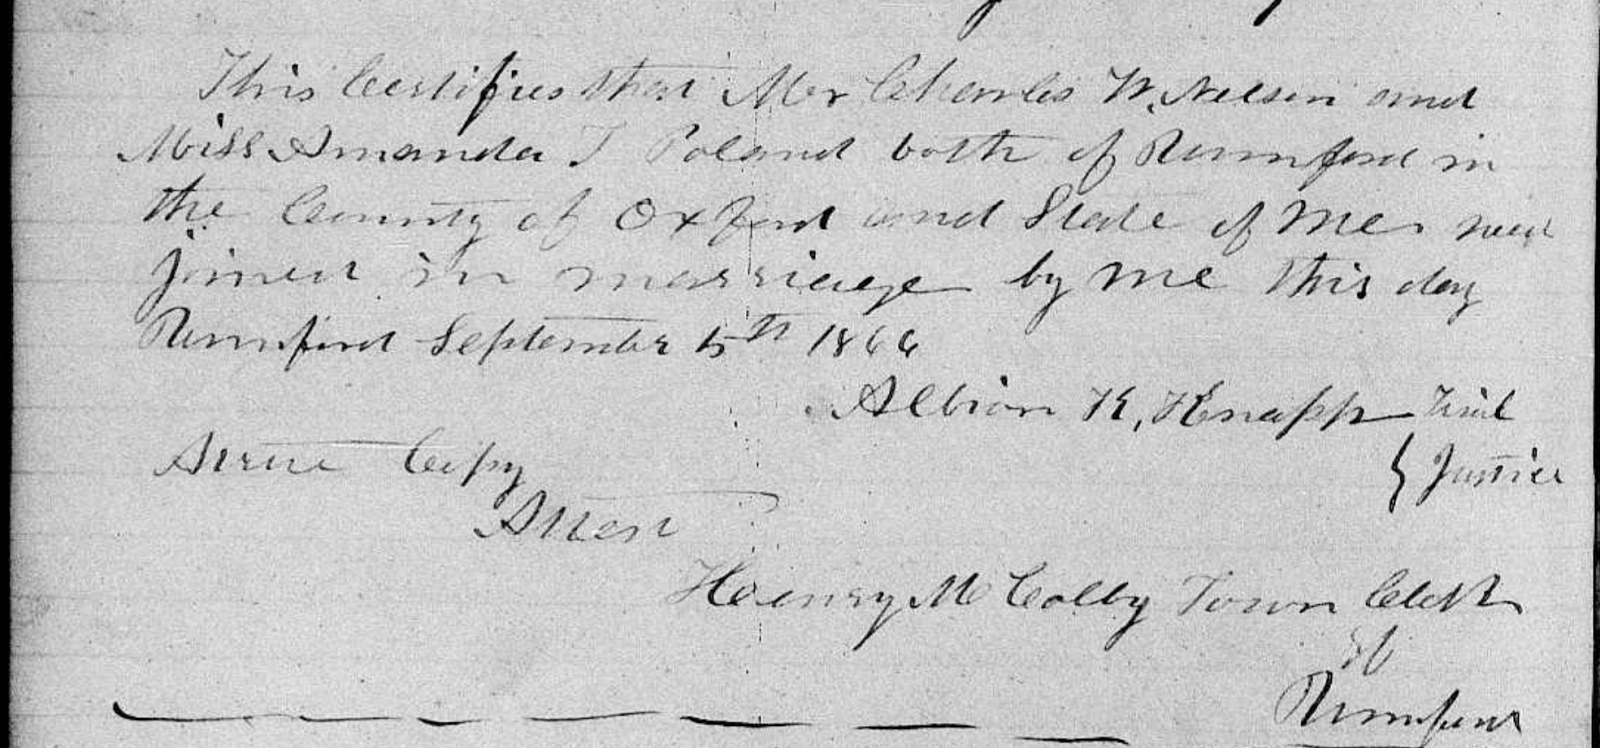 This Certifies that Mr Charles W. Nelson and
Miss Amanda J Poland both of Rumford in
the County of Oxford and State of Me.
joined in marriage by me this day
Rumford September 5th 1866
Albion K. Knapp Trial
Justice
A true Copy
Attest
Henry M Colby Town Clerk
of
Rumford